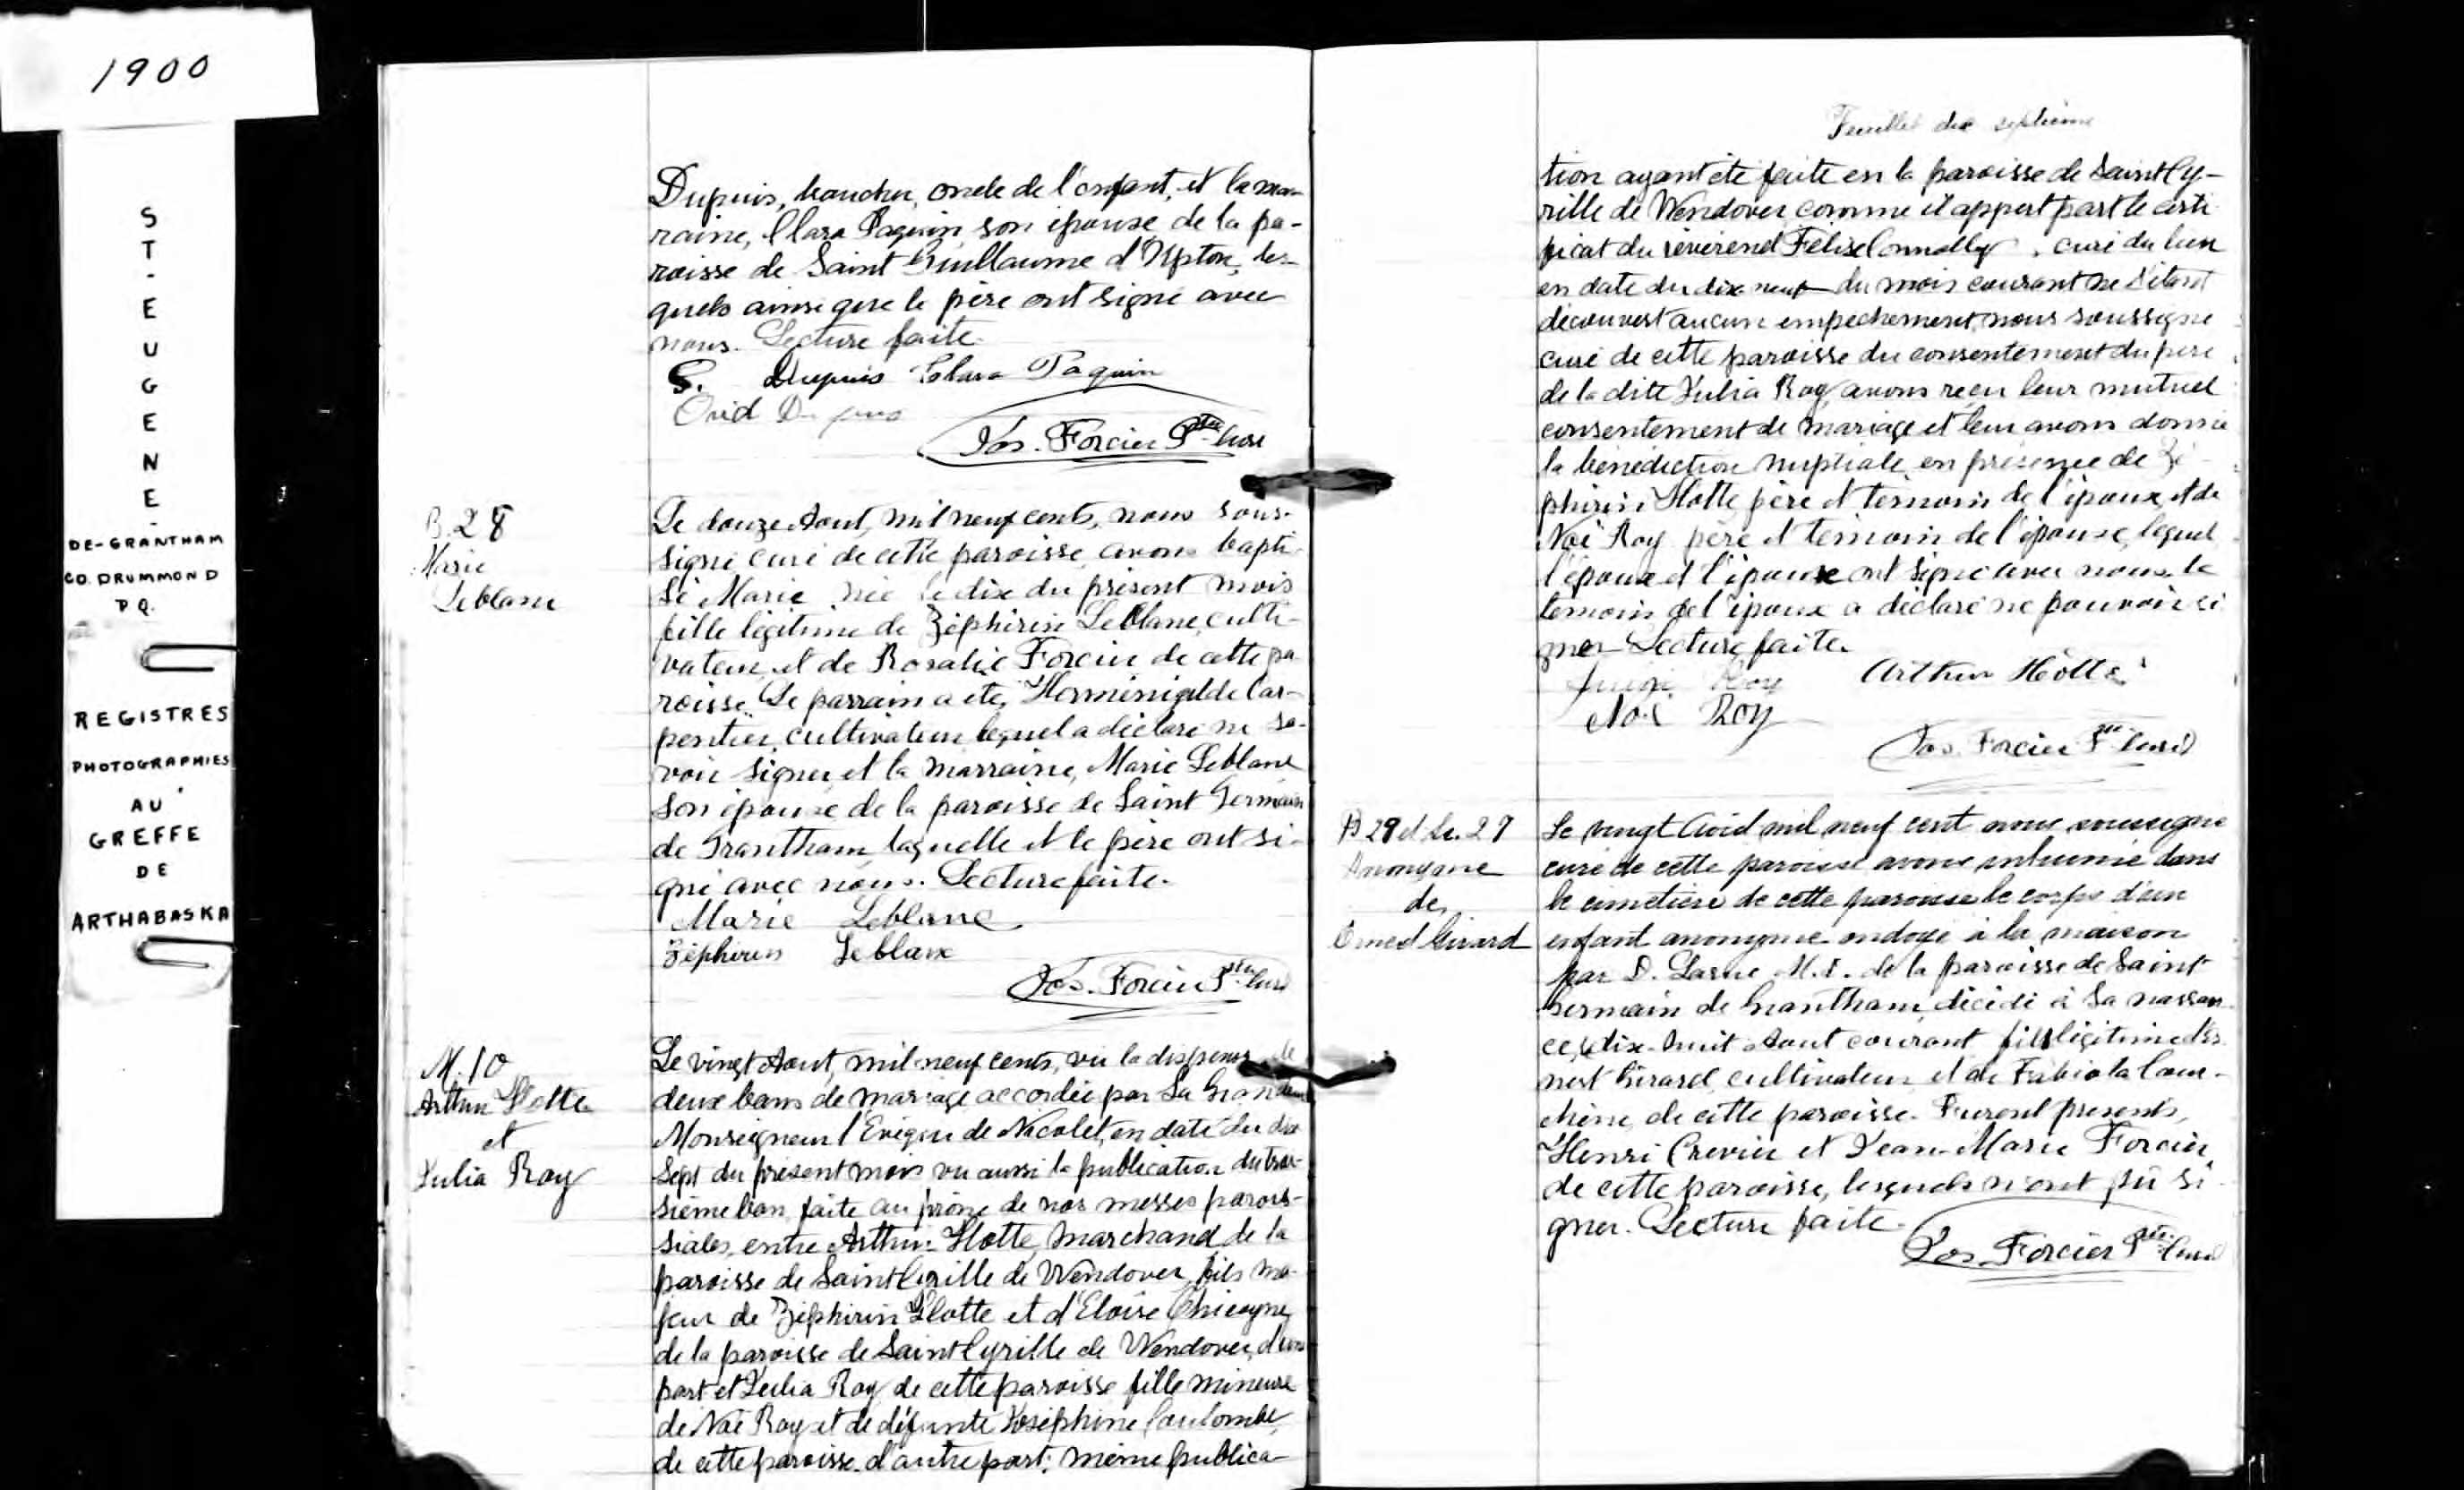 1900
ST-EUGENE
DE-GRANTHAM
CO. DRUMMOND
P Q.
REGISTRES
PHOTOGRAPHIES
AU
GREFFE
DE
ARTHABASKA
Dupuis, boucher, oncle de l'enfant, et la mar-
raine, Clara Paquin son épouse, de la pa-
roisse de Saint Guillaume d'Upton, les-
quels ainsi que le père ont signé avec
nous. Lecture faite.
S. Dupuis Clara Paquin
Ovid Dupuis
Jos. Forcier Ptre Curé
B. 28
Marie
Leblanc
Le douze Aout, mil neuf cents, nous sous-
signé curé de cette paroisse, avons bapti-
sé Marie née le dix du présent mois
fille légitime de Zéphirin Leblanc, culti-
vateur, et de Rosalie Forcier de cette pa-
roisse. Le parrain a été, Herménigilde Car-
pentier, cultivateur lequel a déclaré ne sa-
voir signer, et la marraine, Marie Leblanc
son épouse de la paroisse de Saint Germain
de Grantham, laquelle et le père ont si-
gné avec nous. Lecture faite.
Marie Leblanc
Zéphirin Leblanc
Jos. Forcier Ptre Curé
M. 10
Arthur Hotte
et
Julia Roy
Le vingt Aout, mil neuf cents, vu la dispense de
deux bans de mariage accordée par Sa Grandeur
Monseigneur l'Evêque de Nicolet, en date du dix
Sept du présent mois vu aussi la publication du troi-
sième ban faite au prône de nos messes parois-
siales, entre Arthur Hotte, marchand, de la
paroisse de Saint Cyrille de Wendover, fils ma-
jeur de Zéphirin Hotte et d'Eloïse Chicoyne,
de la paroisse de Saint Cyrille de Wendover, d'une
part et Julia Roy, de cette paroisse fille mineure
de Noé Roy et de défunte Joséphine Coulombe,
de cette paroisse, d'autre part; même publica-
Feuillet dix septième
tion ayant été faite en la paroisse de Saint Cy-
rille de Wendover comme il appert part le certi-
ficat du révérend Félix Connolly, curé du lieu
en date du dix neuf du mois courant ne s'étant
découvert aucun empêchement, nous soussigné
curé de cette paroisse du consentement du père
de la dite Julia Roy, avons reçu leur mutuel
consentement de mariage et leur avons donné
la bénédiction nuptiale en présence de Zé-
phirin Hotte père et témoin de l'époux, et de
Noé Roy père et témoin de l'épouse, lequel
l'époux et l'épouse ont signé avec nous. le
témoin de l'époux a déclaré ne pouvoir si
gner Lecture faite.
Roy Arthur Hotte
Noé Roy
Jos. Forcier Ptre Curé
B 29 et S. 27
Anonyme
de
Ernest Girard
Le vingt Aout mil neuf cent nous soussigné
curé de cette paroisse avons inhumé dans
le cimetière de cette paroisse le corps d'un
enfant anonyme ondoyé à la maison
par D. M. D. de la paroisse de Saint
Germain de Grantham, décédé à sa naissan-
ce, le dix-huit Aout courant fils légitime d'Er-
nest Girard, cultivateur et de Fabiola Cour-
chène, de cette paroisse. Furent présents,
Henri Crevier et Jean-Marie Forcier,
de cette paroisse, lesquels n'ont pû si-
gner. Lecture faite.
Jos. Forcier Ptre Curé